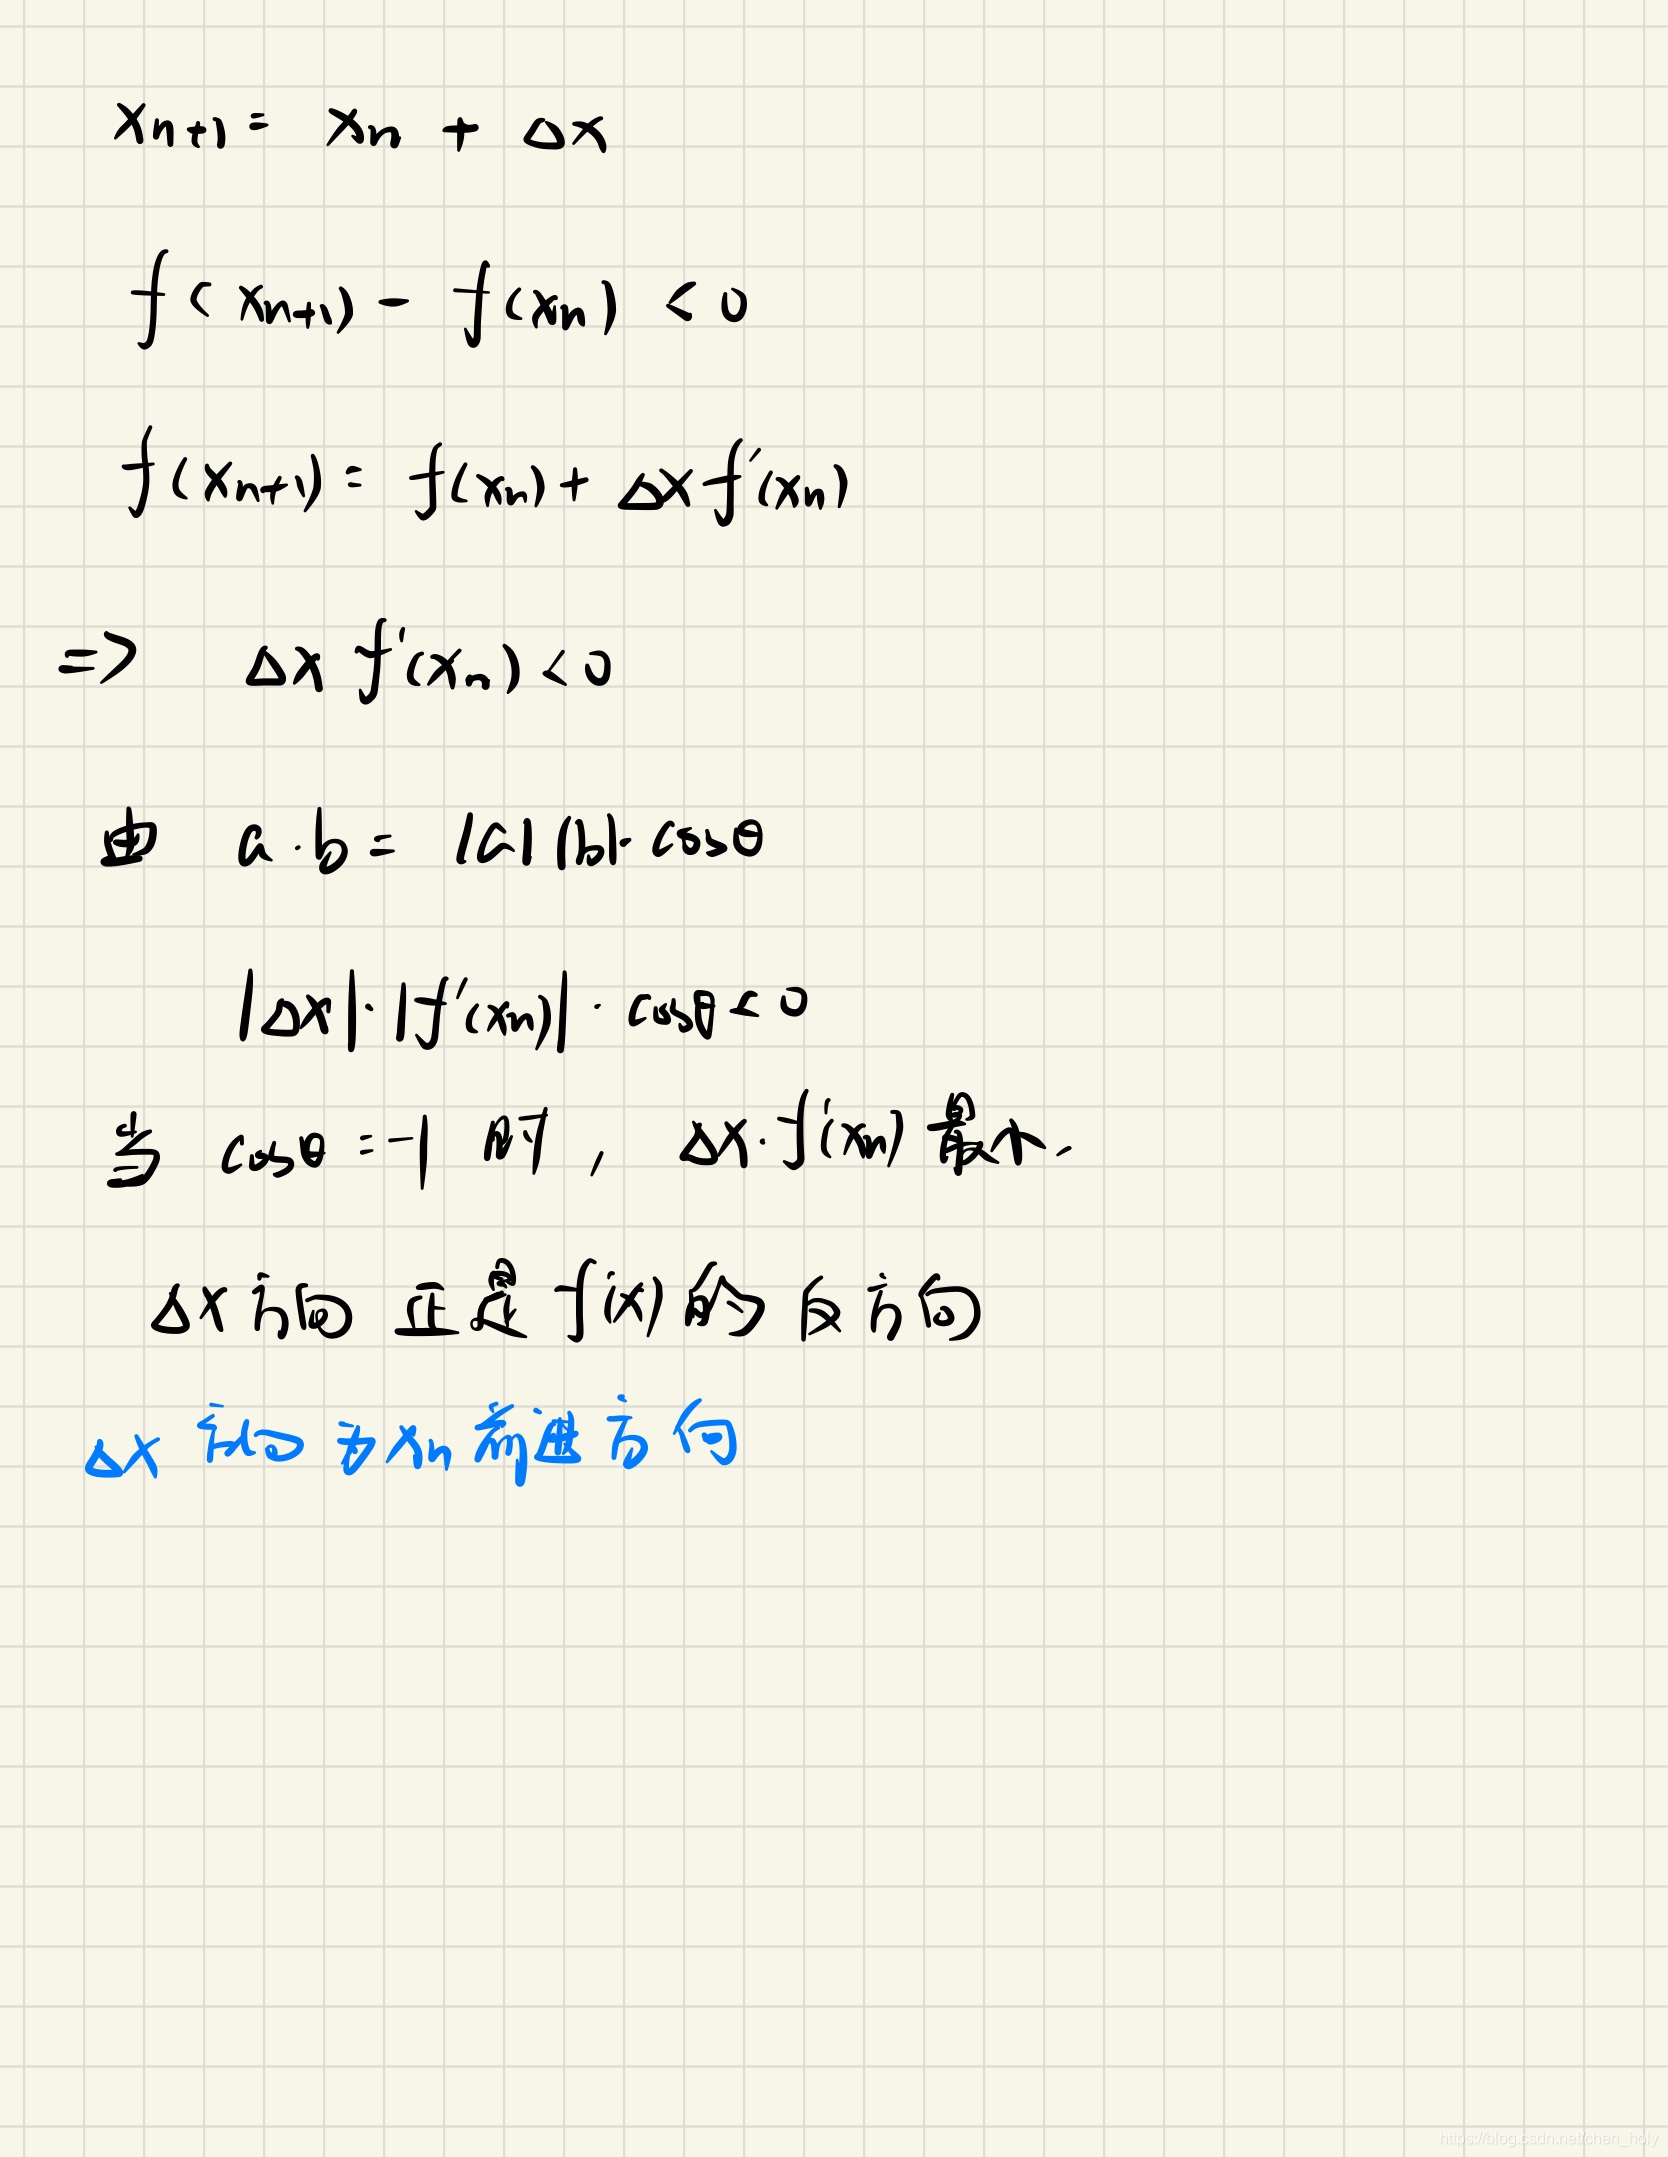 xₙ₊₁ = xₙ + Δx
f(xₙ₊₁) - f(xₙ) < 0
f(xₙ₊₁) = f(xₙ) + Δx f'(xₙ)
=> Δx f'(xₙ) < 0
由 a·b = |a||b|·cosθ
|Δx|·|f'(xₙ)|·cosθ < 0
当 cosθ = -1 时, Δx·f'(xₙ) 最小.
Δx 方向 正是 f'(x) 的 反方向
Δx 方向 为 xₙ 前进方向
https://blog.csdn.net/chen_holy